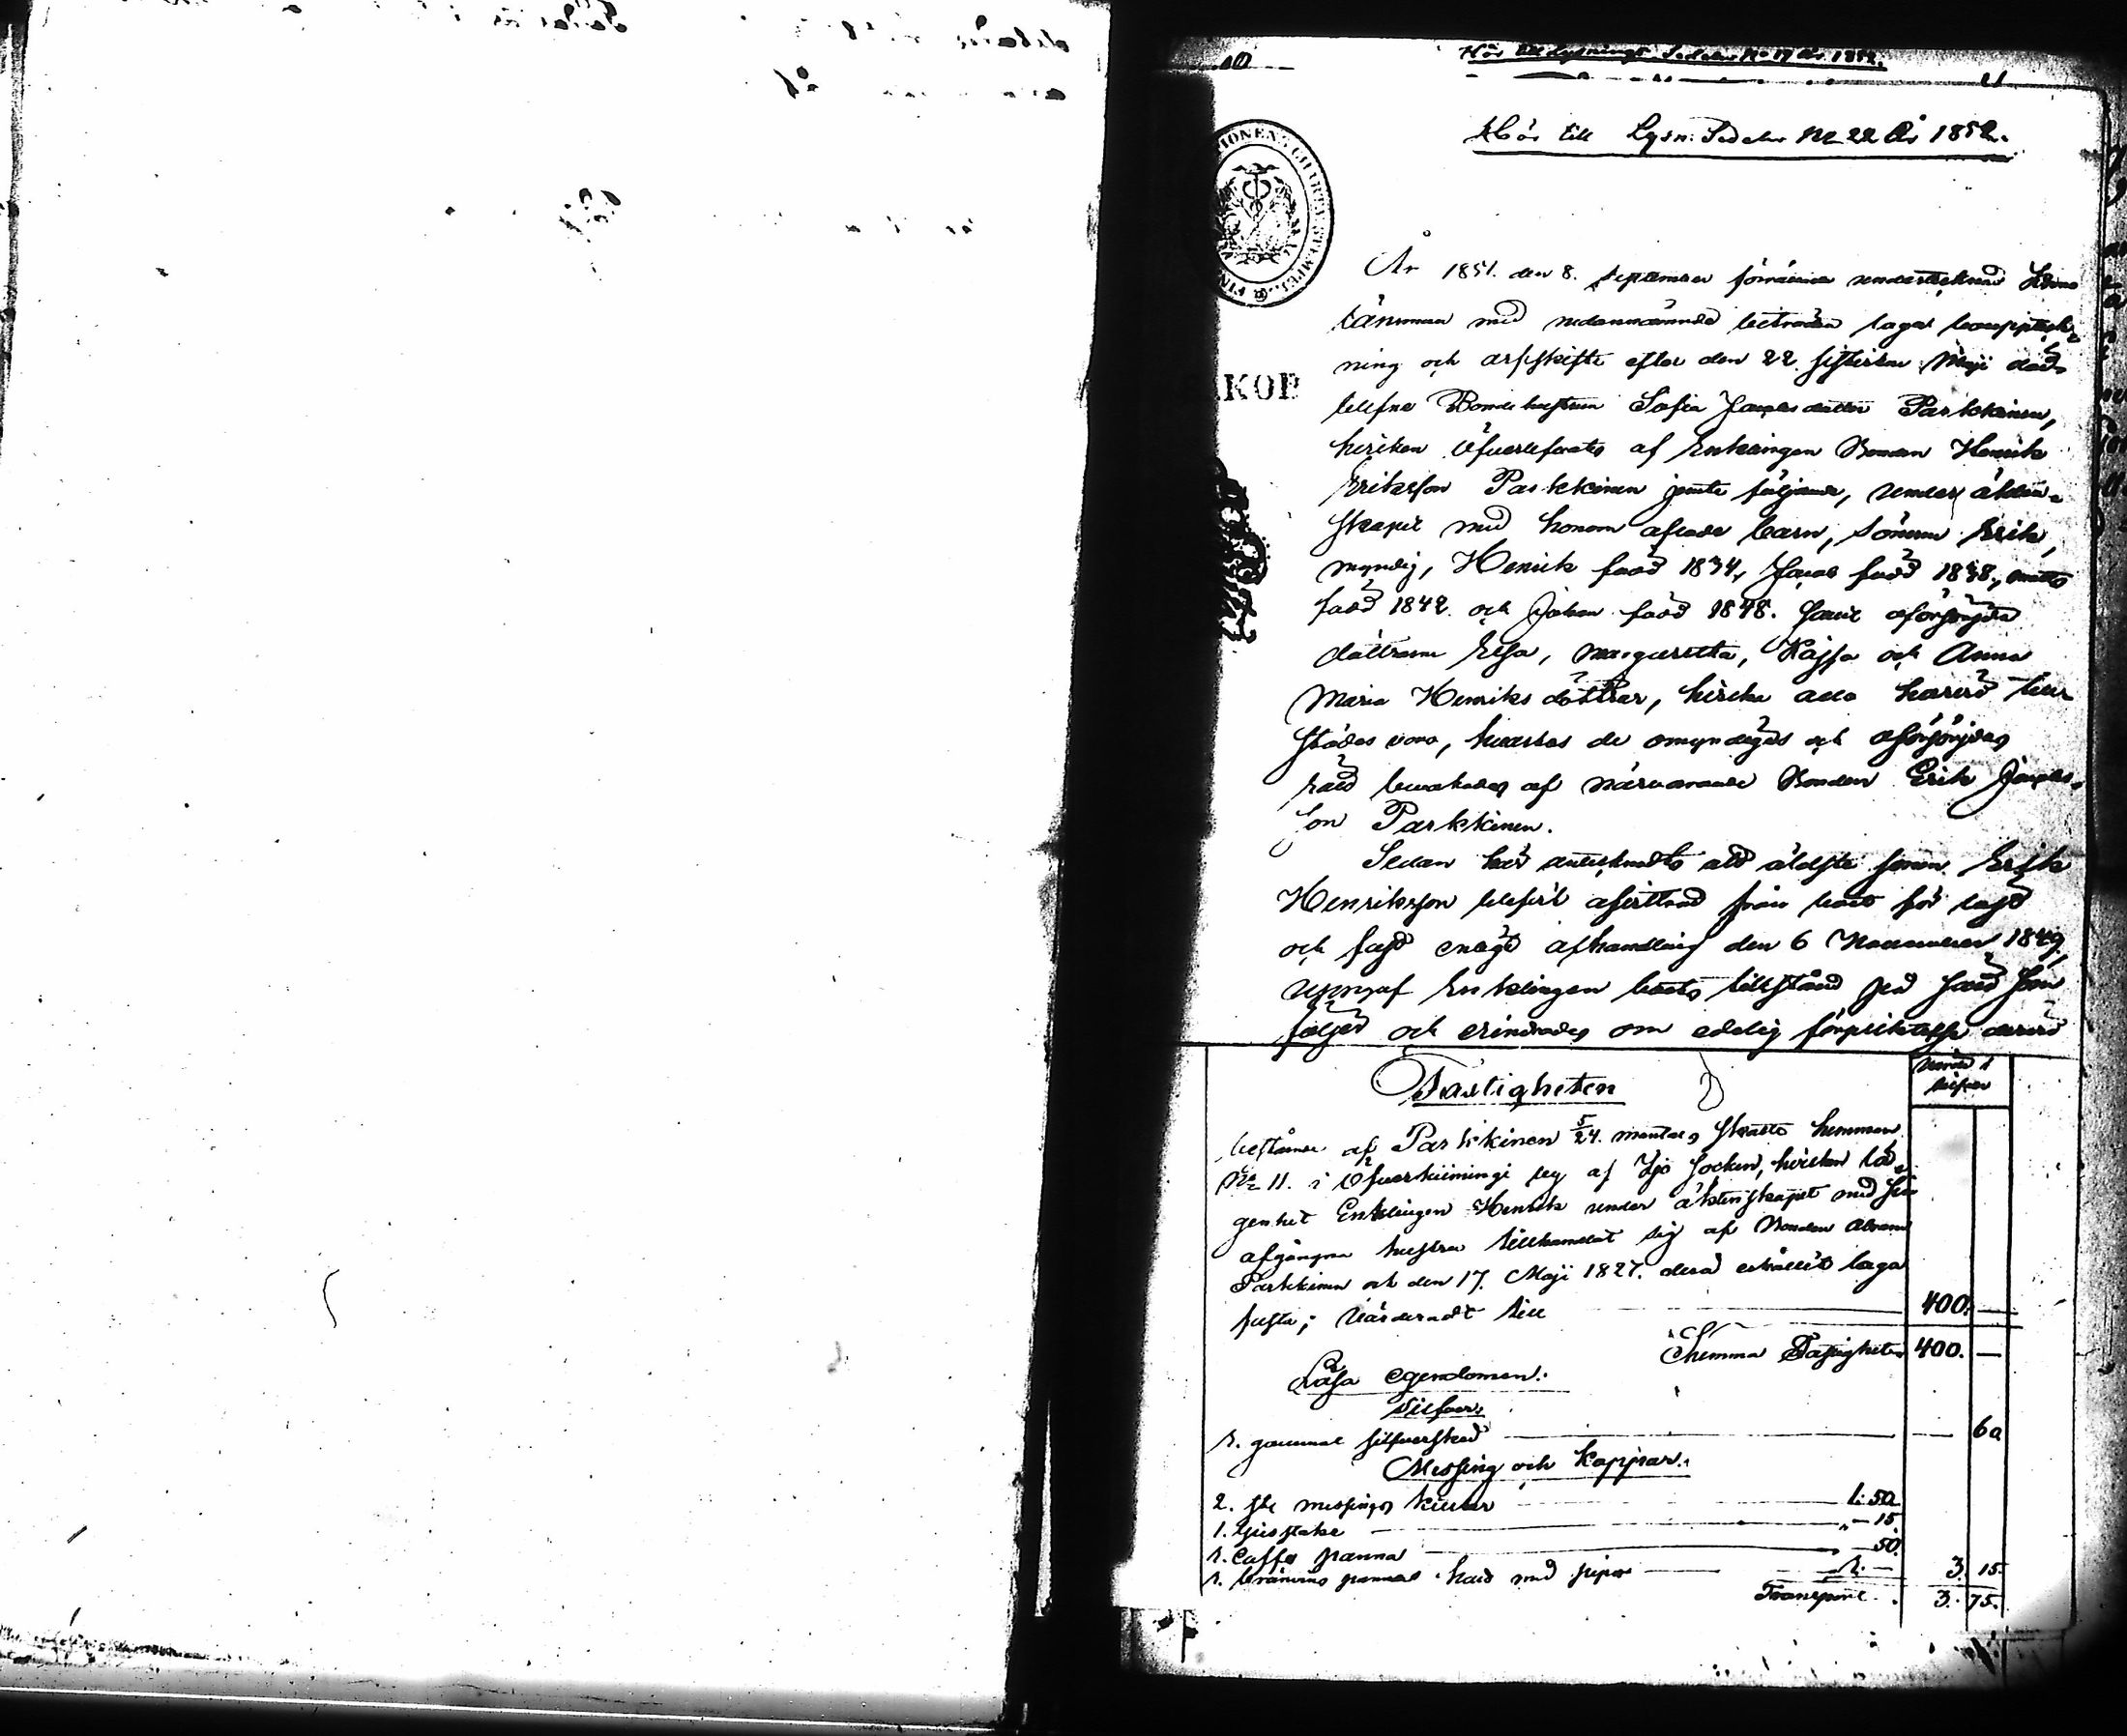 Hör till Lysnings Sedeln No 17 År 1852.
Hör till Lysn: Sedeln No 22 År 1852.
År 1851. den 8. September förrättade undertecknad Krono
länsman med nedannämnde betrodda lagal bouppteck-
ning och arfskifte efter den 22 sistlidne Maji dods
blefne Bondehustrun Sofia Jacobsdotter Parkkinen,
hvilken öfverlefvats af Enklingen Bonden Henrik
Eriksson Parkkinen jemte följande, under äkten-
skapet med honom aflade barn, sönerne Erik,
myndig, Henrik född 1834, Jacob född 1838, Matts
född 1842 och Johan född 1848. samt oförsörjda
döttrarne Elsa, Margaretha, Kajsa och Anna
Maria Henriks döttrar, hvilka alla härvid till
städes voro, hvarvid de omyndigas och oförsörjdas
rätt bevakades af närvarande Bonden Erik Jacobs-
son Parkkinen.
Sedan här antecknadts att äldste sonen Erik
Henriksson blifvit afvittrad från boet för löst
och fast enligt afhandling den 6 November 1849,
uppgaf Enklingen boets tillstånd på sätt som
följer och erindrades om edelig förpliktelse dervid
Fastigheten
Värde i
silfver
bestående af Parkkinen 5/24. mantals skatte hemman
No 11. i Öfverkiimingi by af Ijo Socken, hvilken lä-
genhet Enklingen Henrik under äktenskapet med sin
afgångna hustru tillhandlat sig af Bonden Abram
Parkkinen och den 17. Maji 1827. derå erhållit laga
fasta; värderadt till 400. —
Summa Fastigheten 400. —
Lösa egendomen.
Silfver.
1. gammal silfversked — 60
Messing och Koppar.
2. st: messings kittlar 1: 50
1. ljusstake " — 15.
1. Caffe panna — 50.
1. bränvins panna hatt med pipor 1. — 3. 15.
Transport. 3. 75.